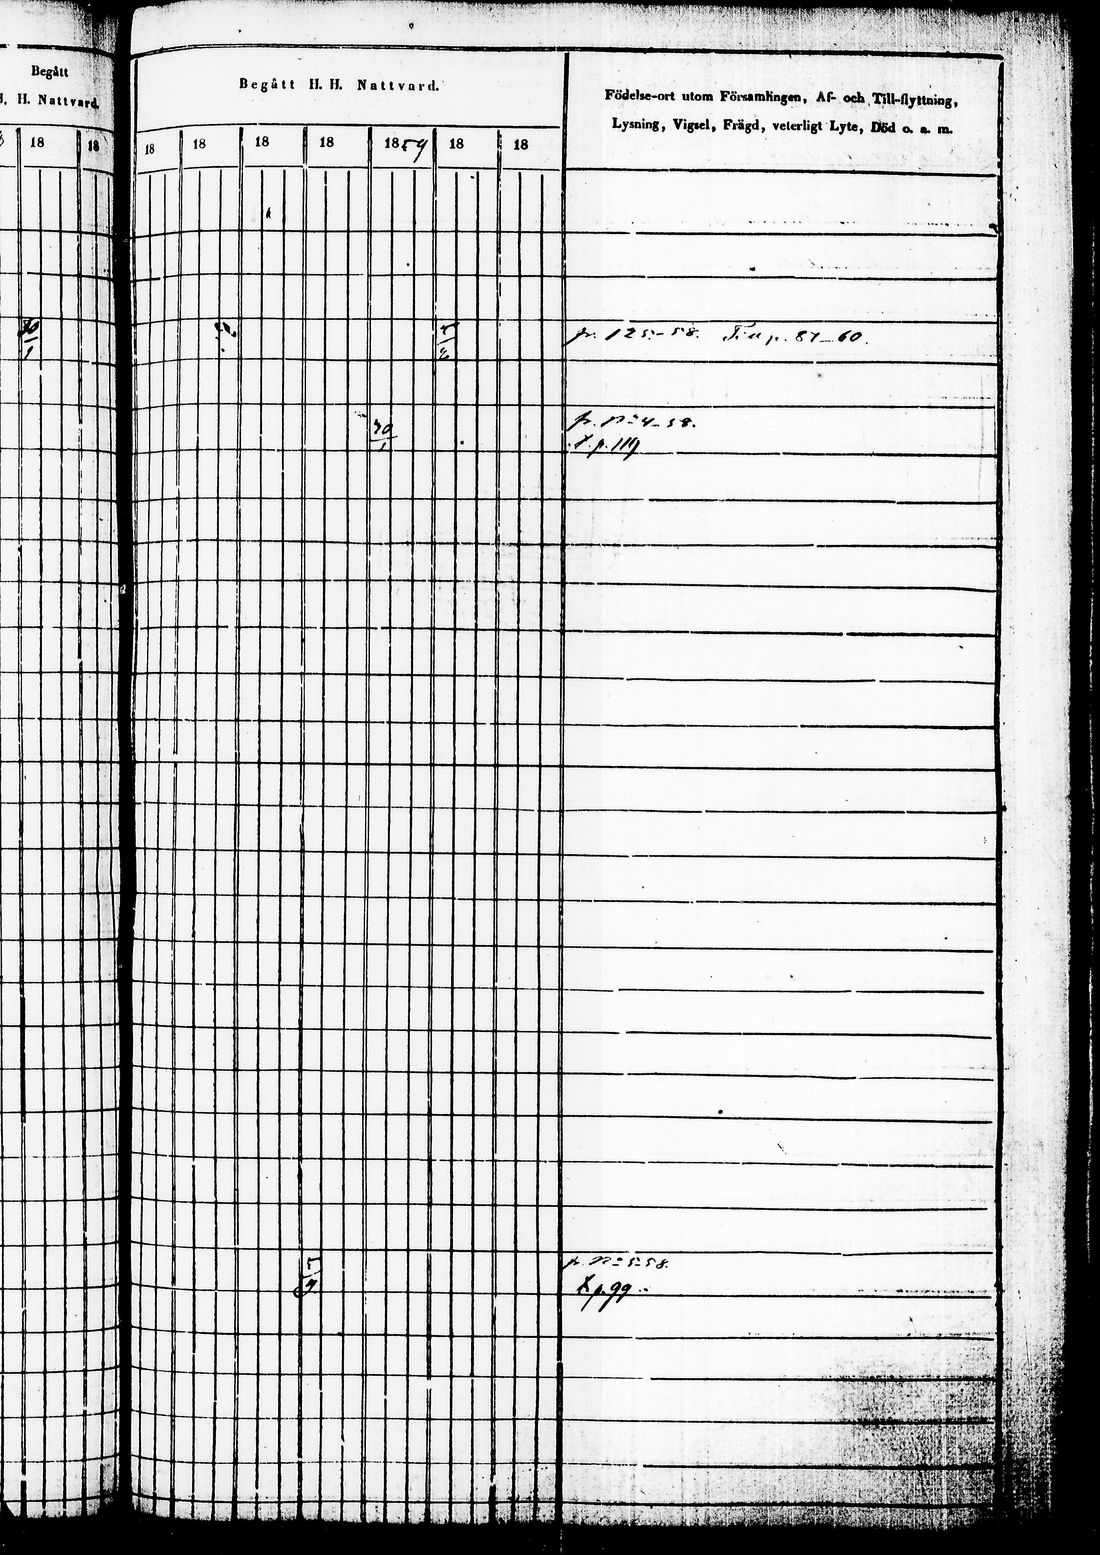 Begått
H. H. Nattvard.
18 18
Begått H. H. Nattvard.
18 18 18 18 1859 18 18
Födelse-ort utom Församlingen, Af- och Till-flyttning,
Lysning, Vigsel, Frägd, veterligt Lyte, Död o. a. m.
30/1
fr. 125-58. Till p. 87-60.
30/1
fr. No 4-58.
X. p. 119
fr. No 5-58.
X p. 99